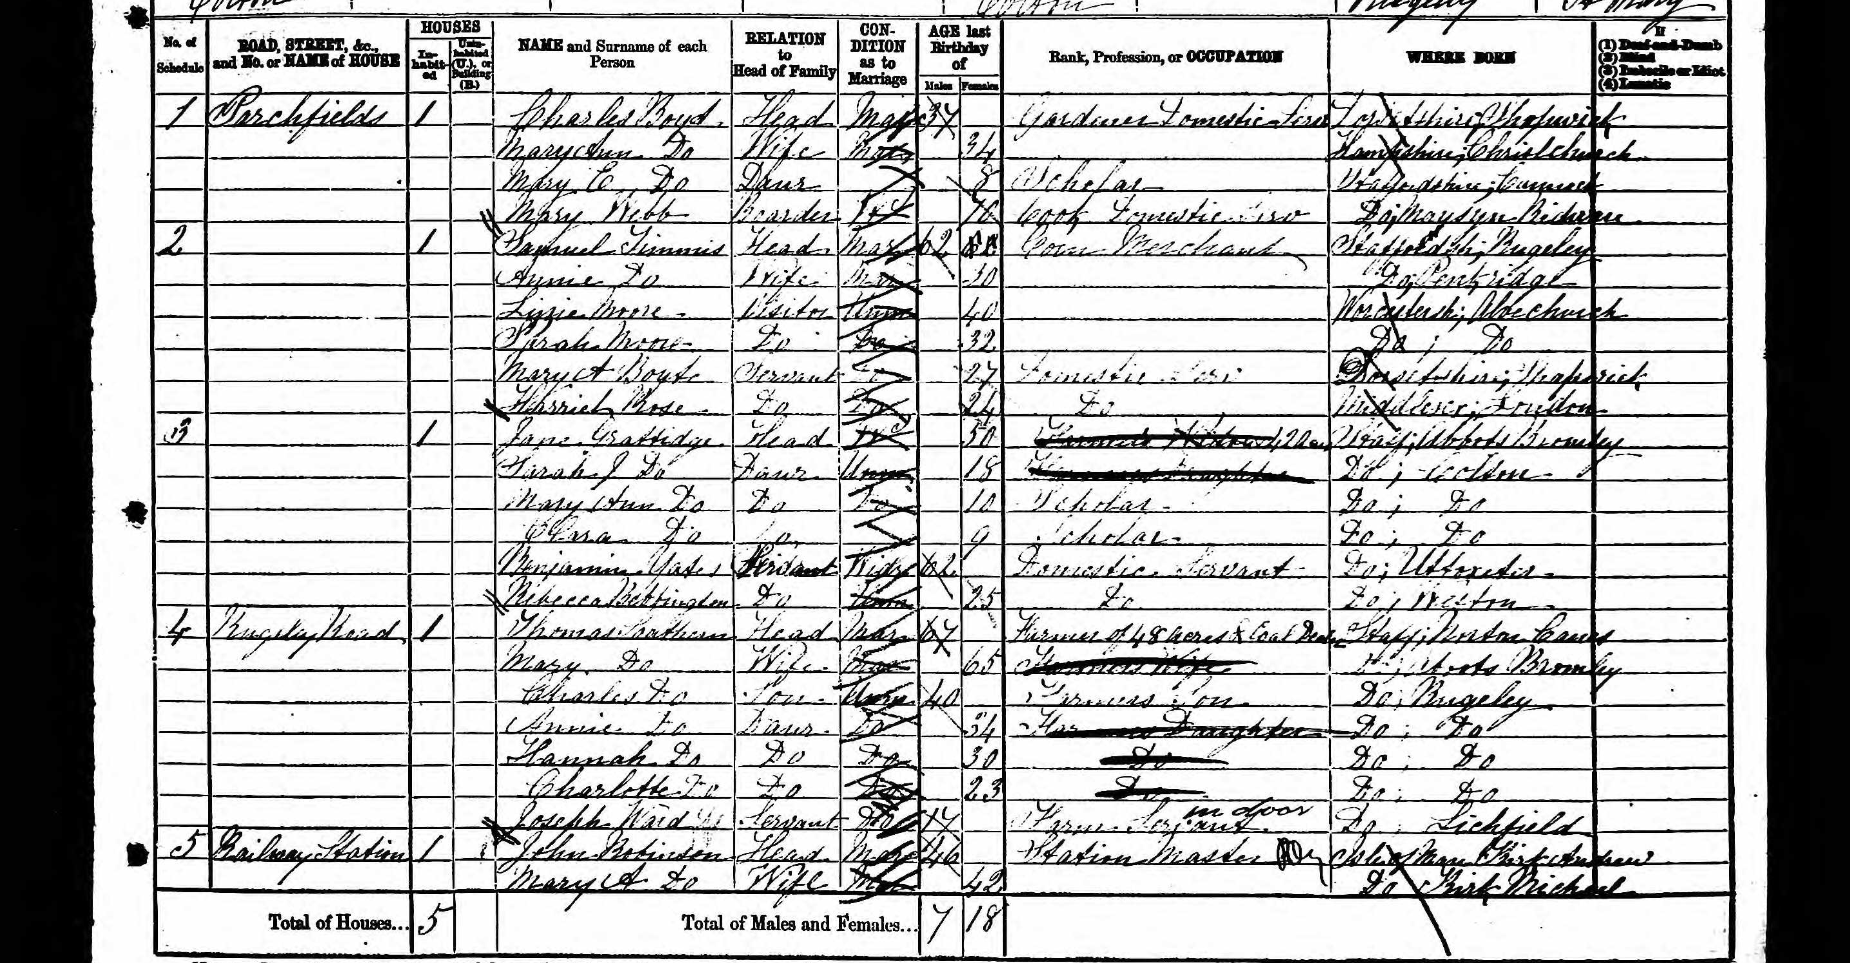 Colton Rugeley St Mary
No. of Schedule | ROAD, STREET, &c., and No. or NAME of HOUSE | HOUSES In-habit-ed | Unin-habited (U.), or Building (B.) | NAME and Surname of each Person | RELATION to Head of Family | CON-DITION as to Marriage | AGE last Birthday of Males Females | Rank, Profession, or OCCUPATION | WHERE BORN | If (1) Deaf-and-Dumb (2) Blind (3) Imbecile or Idiot (4) Lunatic
1 Parchfields 1 Charles Boyd Head Mar 37 Gardener Domestic Serv Dorsetshire; Shapwick
Mary Ann Do Wife Mar 34 Hampshire; Christchurch
Mary E Do Daur 8 Scholar Staffordshire; Cannock
Mary Webb Boarder Cook Domestic Serv Do; Mavsyn Ridware
2 1 Samuel Timmis Head Mar 62 Corn Merchant Staffordsh; Rugeley
Annie Do Wife Mar 30 Do; Penkridge
Lizzie Moore Visitor Unm 40 Worcestersh; Alvechurch
Sarah Moore Do Do 32 Do ; Do
Mary A Servant Do 27 Domestic Serv Dorsetshire; Shapwick
Harriet Rose Do Do 24 Do Middlesex; London
3 1 Jane Grattidge Head W 50 Farmers Widow Staff; Abbots Bromley
Sarah J Do Daur Unm 18 Farmers Daughter Do ; Colton
Mary Ann Do Do Do 10 Scholar Do ; Do
Clara Do Do 9 Scholar Do ; Do
Benjamin Yates Servant Widr 62 Domestic Servant Do; Uttoxeter
Rebecca Bebbington Do Unm 25 Do Do; Weston
4 Rugeley Road 1 Thomas Southern Head Mar 67 Farmer of 48 acres & Coal Staff; Norton Canes
Mary Do Wife Mar 65 Farmers Wife Do; Abbots Bromley
Charles Do Son Unm 40 Farmers Son Do; Rugeley
Annie Do Daur Do 34 Farmers Daughter Do ; Do
Hannah Do Do Do 30 Do Do ; Do
Charlotte Do Do Do 23 Do Do ; Do
Joseph Ward Servant Do 17 Farm Servant in door Do Lichfield
5 Railway Station 1 John Robinson Head Mar 46 Station Master Isle of Man Kirk Andrew
Mary A Do Wife Mar 42 Do Kirk Michael
Total of Houses... 5 Total of Males and Females... 7 18